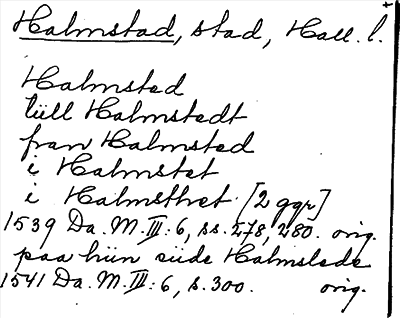 Halmstad, stad, Hall. l.
Halmsted
tüll Halmstedt
fran Halmsted
i Halmstet
i Halmsthet [2 ggr]
1539 Da. M. III: 6, ss. 278, 280. orig.
paa hiin siide Halmstede
1541 Da. M. III: 6, s. 300. orig.